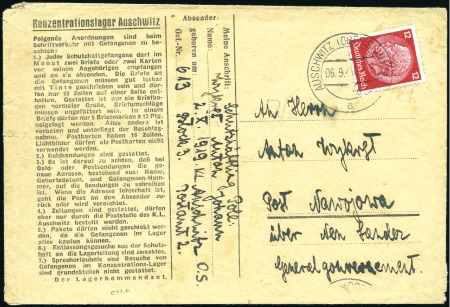 Konzentrationslager Auschwitz
Folgende Anordnungen sind beim
Schriftverkehr mit Gefangenen zu be-
achten:
1.) Jeder Schutzhaftgefangene darf im
Monat zwei Briefe oder zwei Karten
von seinen Angehörigen empfangen
und an sie absenden. Die Briefe an
die Gefangenen müssen gut lesbar
mit Tinte geschrieben sein und dür-
fen nur 15 Zeilen auf einer Seite ent-
halten. Gestattet ist nur ein Briefbo-
gen normaler Größe. Briefumschläge
müssen ungefüttert sein. In einem
Briefe dürfen nur 5 Briefmarken à 12 Pfg.
beigelegt werden. Alles andere ist
verboten und unterliegt der Beschlag-
nahme. Postkarten haben 10 Zeilen.
Lichtbilder dürfen als Postkarten nicht
verwendet werden.
2.) Geldsendungen sind gestattet.
3.) Es ist darauf zu achten, daß bei
Geld- oder Postsendungen die ge-
naue Adresse, bestehend aus: Name,
Geburtsdatum, und Gefangenen-Num-
mer, auf die Sendungen zu schreiben
ist. Wenn die Adresse fehlerhaft ist,
geht die Post an den Absender zu-
rück oder wird vernichtet.
4.) Zeitungen sind gestattet, dürfen
aber nur durch die Poststelle des K.L.
Auschwitz bestellt werden.
5.) Pakete dürfen nicht geschickt wer-
den, da die Gefangenen im Lager
alles kaufen können.
6.) Entlassungsgesuche aus der Schutz-
haft an die Lagerleitung sind zwecklos.
7.) Sprecherlaubnis und Besuche von
Gefangenen im Konzentrations-Lager
sind grundsätzlich nicht gestattet.
Der Lagerkommandant.
Absender:
Meine Anschrift:
Name:
geboren am:
Gef.-Nr. 613
Block 3
Postamt 2.
AUSCHWITZ
06.9.
a
12
12
Deutsches Reich
An Herrn
Post Nawojowa
über den Sander
Generalgouvernement.